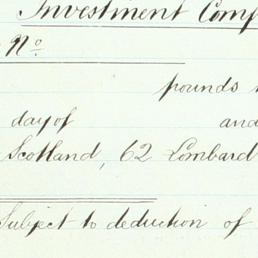 Investment Comp
No
pounds
day of and
Scotland, 62 Lombard
Subject to deduction of